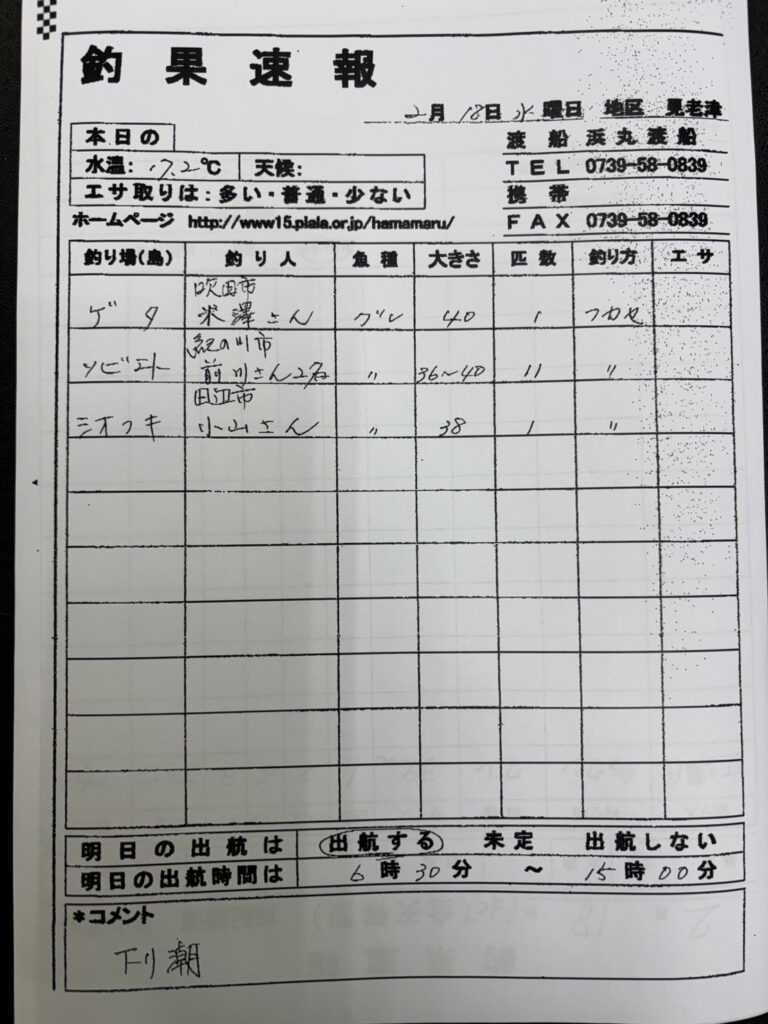 釣果速報
2月 18日 水 曜日 地区 見老津
本日の
水温: 17.2℃ 天候:
エサ取りは:多い・普通・少ない
渡船 浜丸渡船
TEL 0739-58-0839
携帯
FAX 0739-58-0839
ホームページ http://www15.plala.or.jp/hamamaru/
釣り場(島) 釣り人 魚種 大きさ 匹数 釣り方 エサ
吹田市
ゲタ 米澤さん グレ 40 1 フカセ
紀の川市
ソビエト 前川さん2名 〃 36~40 11 〃
田辺市
シオフキ 小山さん 〃 38 1 〃
明日の出航は 出航する 未定 出航しない
明日の出航時間は 6時30分 ~ 15時00分
*コメント
下り潮